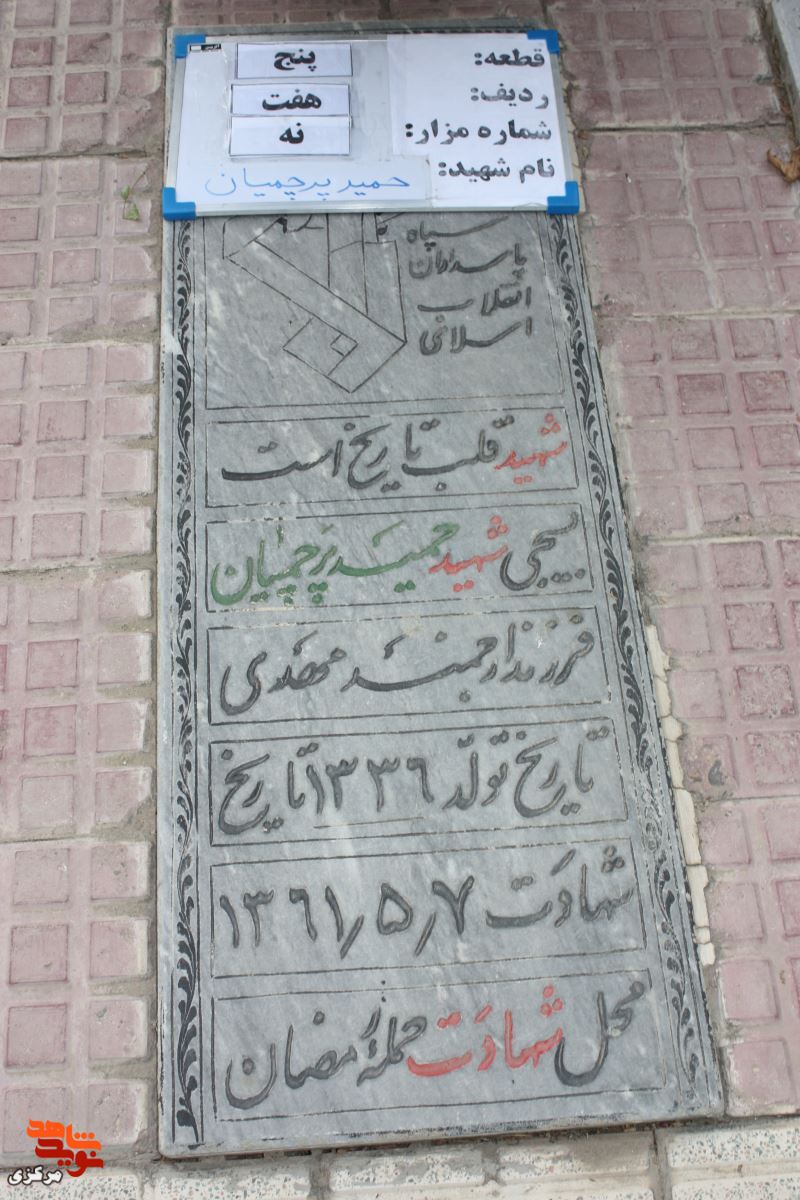 قطعه: پنج
ردیف: هفت
شماره مزار: نه
نام شهید: حمید پرچمیان
سپاه
پاسداران
انقلاب
اسلامی
شهید قلب تاریخ است
بسیجی شهید حمید پرچمیان
فرزند ارجمند مهدی
تاریخ تولّد ۱۳۳۶ تاریخ
شهادَت ۱۳۶۱/۵/۷
محل شهادَت حملهٔ رمضان
نوید شاهد
مرکزی